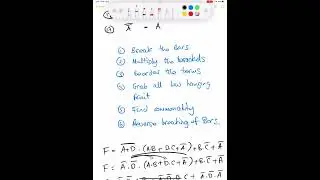 (9) A̿ = A
① Break the Bars
② Multiply the brackets
③ Reorder the terms
④ Grab all low hanging fruit
⑤ Find commonality
⑥ Reverse breaking of Bars.
F = \overline{A+D} . (AB + D.C + \overline{A}) + B.\overline{C} + \overline{A}
F = \overline{A}.\overline{D}. (A.B + D.C + \overline{A}) + B.\overline{C} + \overline{A}